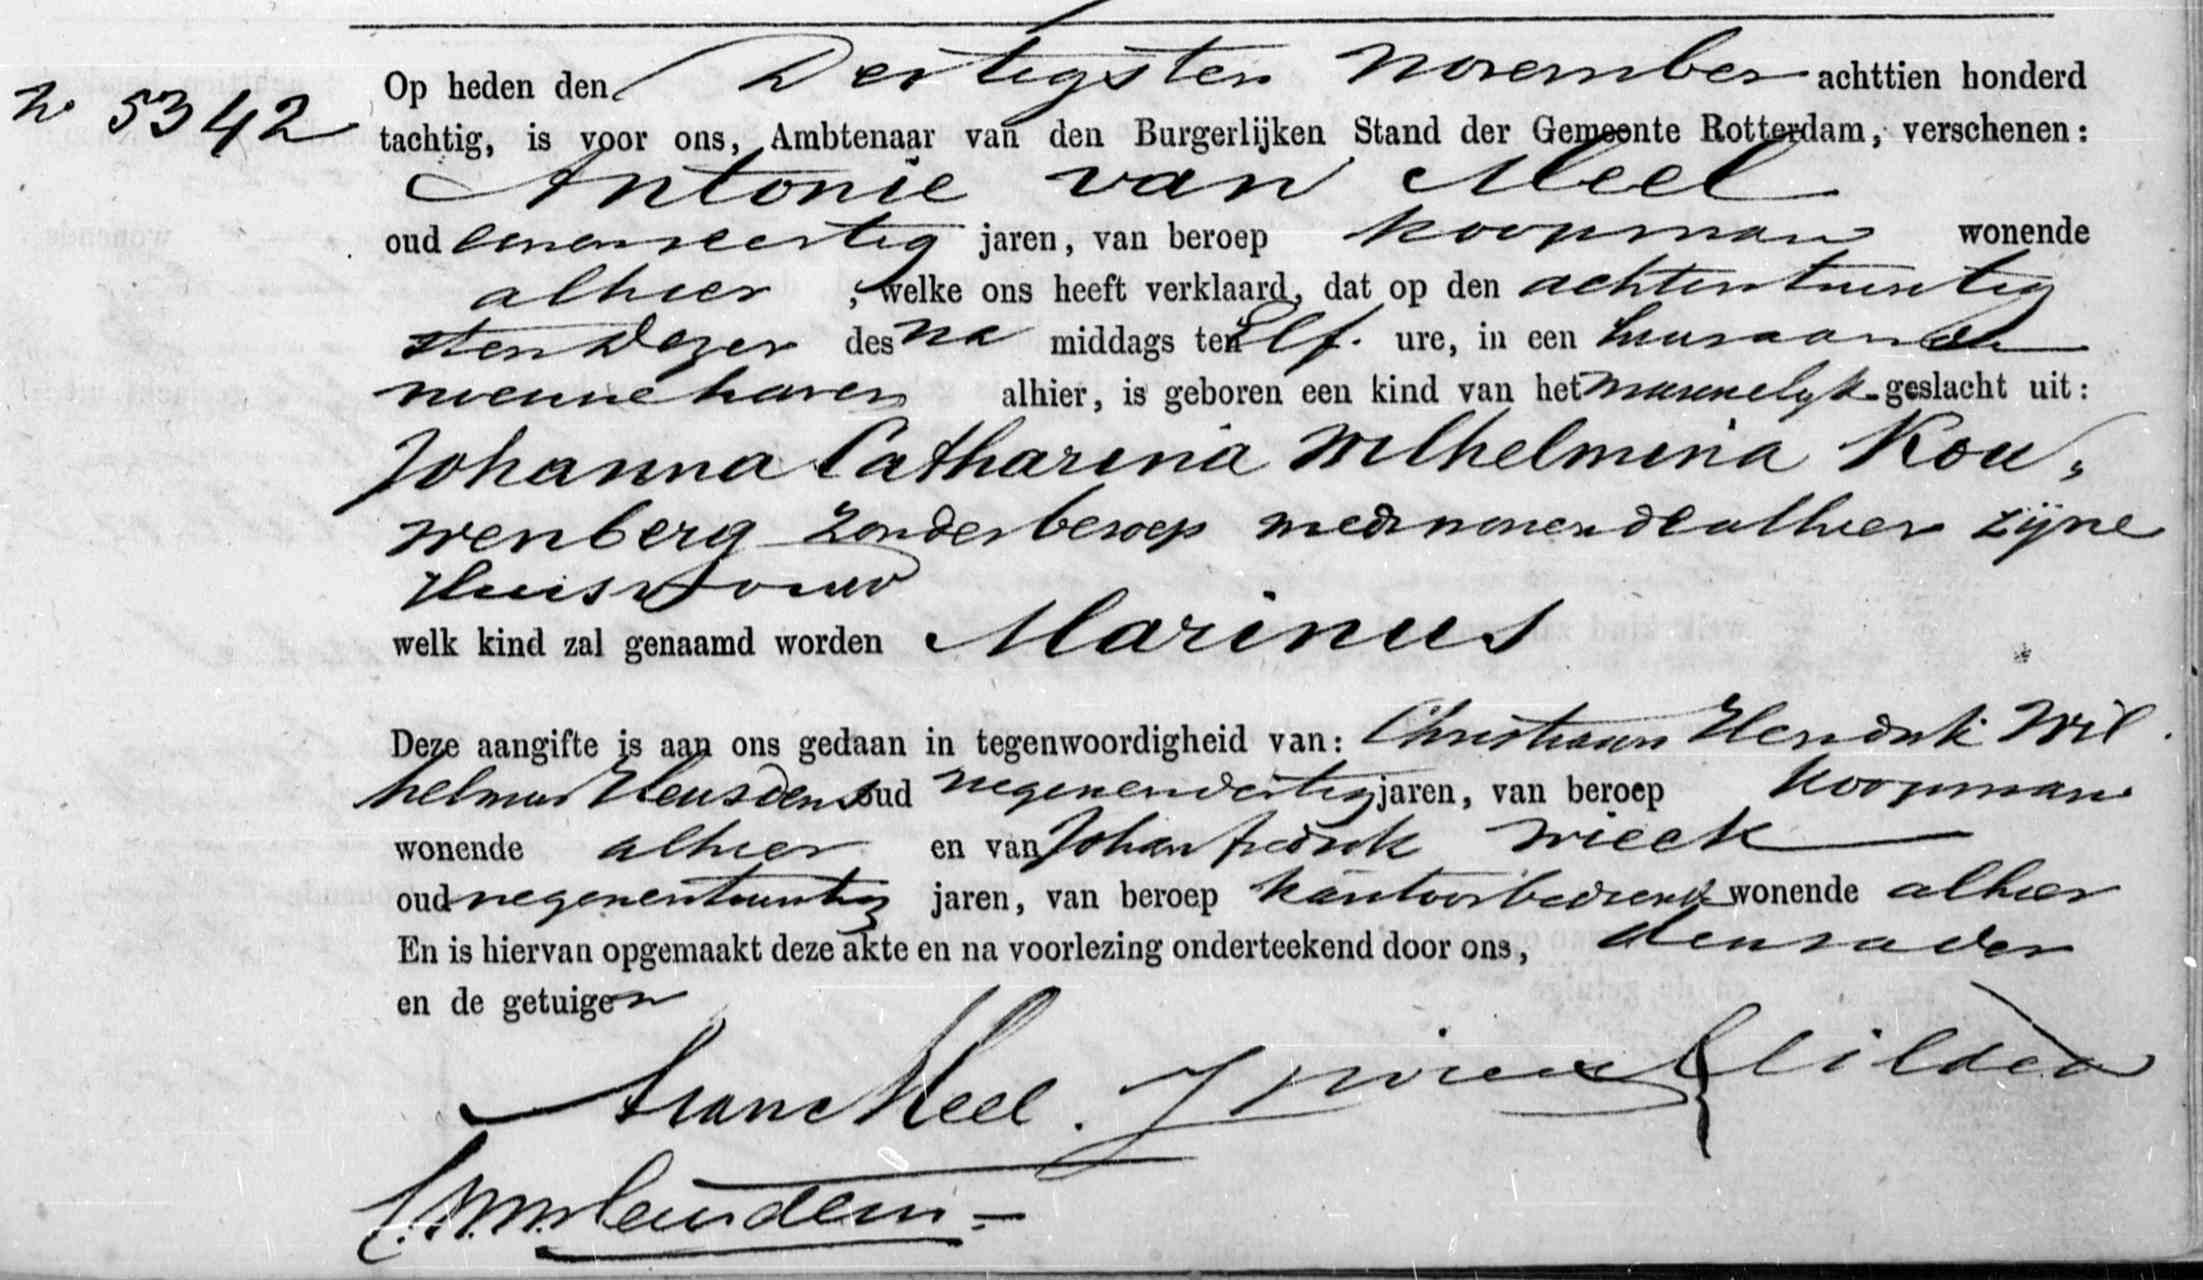 No 5342
Op heden den Dertigsten November achttien honderd
tachtig, is voor ons, Ambtenaar van den Burgerlijken Stand der Gemeente Rotterdam, verschenen:
Antonie van Meel
oud eenenveertig jaren, van beroep koopman wonende
alhier , welke ons heeft verklaard, dat op den achtentwintig
sten dezer des na middags ten Elf ure, in een huis aan de
nieuwehaven alhier, is geboren een kind van het mannelijk geslacht uit:
Johanna Catharina Wilhelmina Kou„
wenberg zonder beroep mede wonende alhier zijne
Huisvrouw
welk kind zal genaamd worden Marinus
Deze aangifte is aan ons gedaan in tegenwoordigheid van: Christiaan Hendrik Wil
helmus Heusdens oud negenendertig jaren, van beroep koopman
wonende alhier en van Johan fredrik Wieck
oud negenentwintig jaren, van beroep kantoorbediende wonende alhier
En is hiervan opgemaakt deze akte en na voorlezing onderteekend door ons, den vader
en de getuigen
A van Meel.